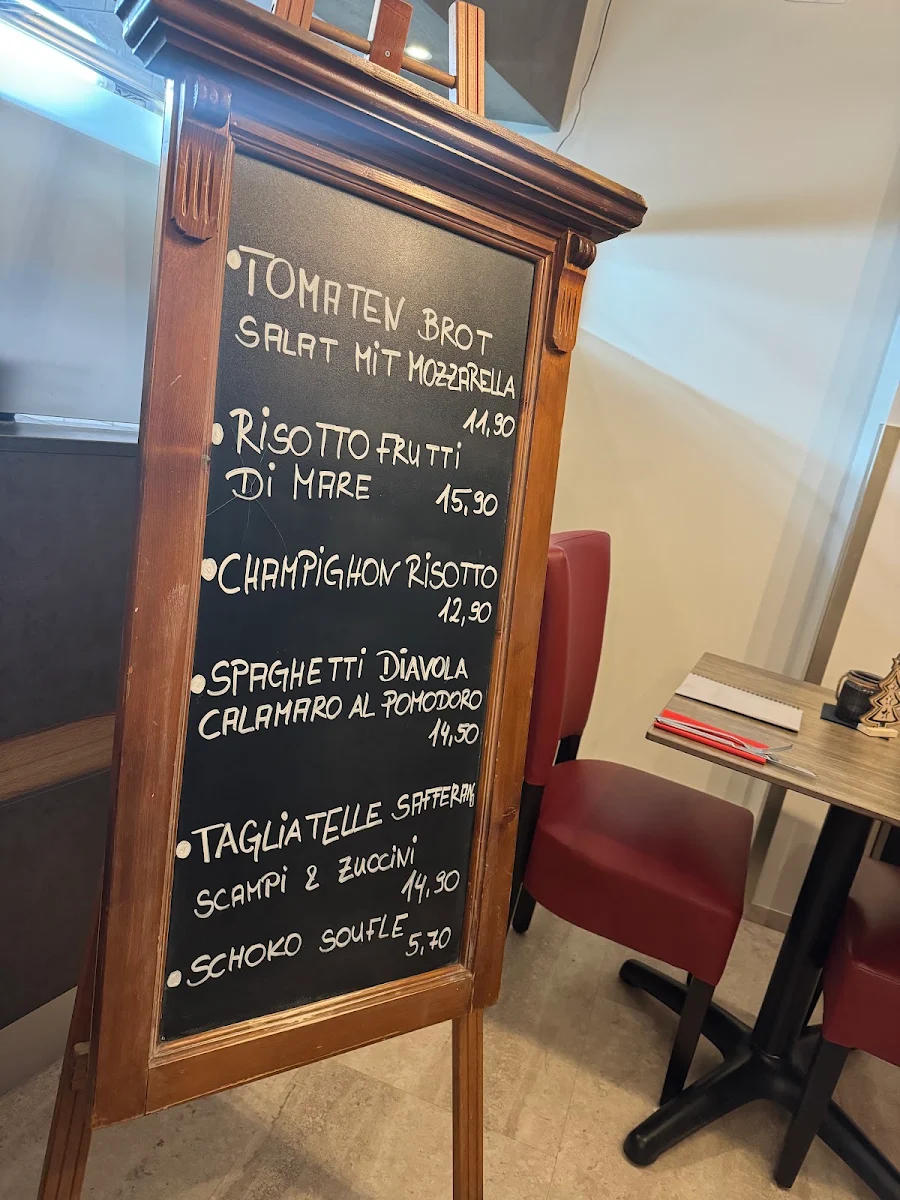 • TOMATEN BROT
SALAT MiT MOZZARELLA
11,90
• RiSOTTO FRUTTi
Di MARE 15,90
• CHAMPiGHON RiSOTTO
12,90
• SPAGHETTi DiAVOLA
CALAMARO AL POMODORO
14,50
• TAGLiATELLE SAFFERANS
SCAMPi & ZUCCiNi
14,90
• SCHOKO SOUFLE 5,70